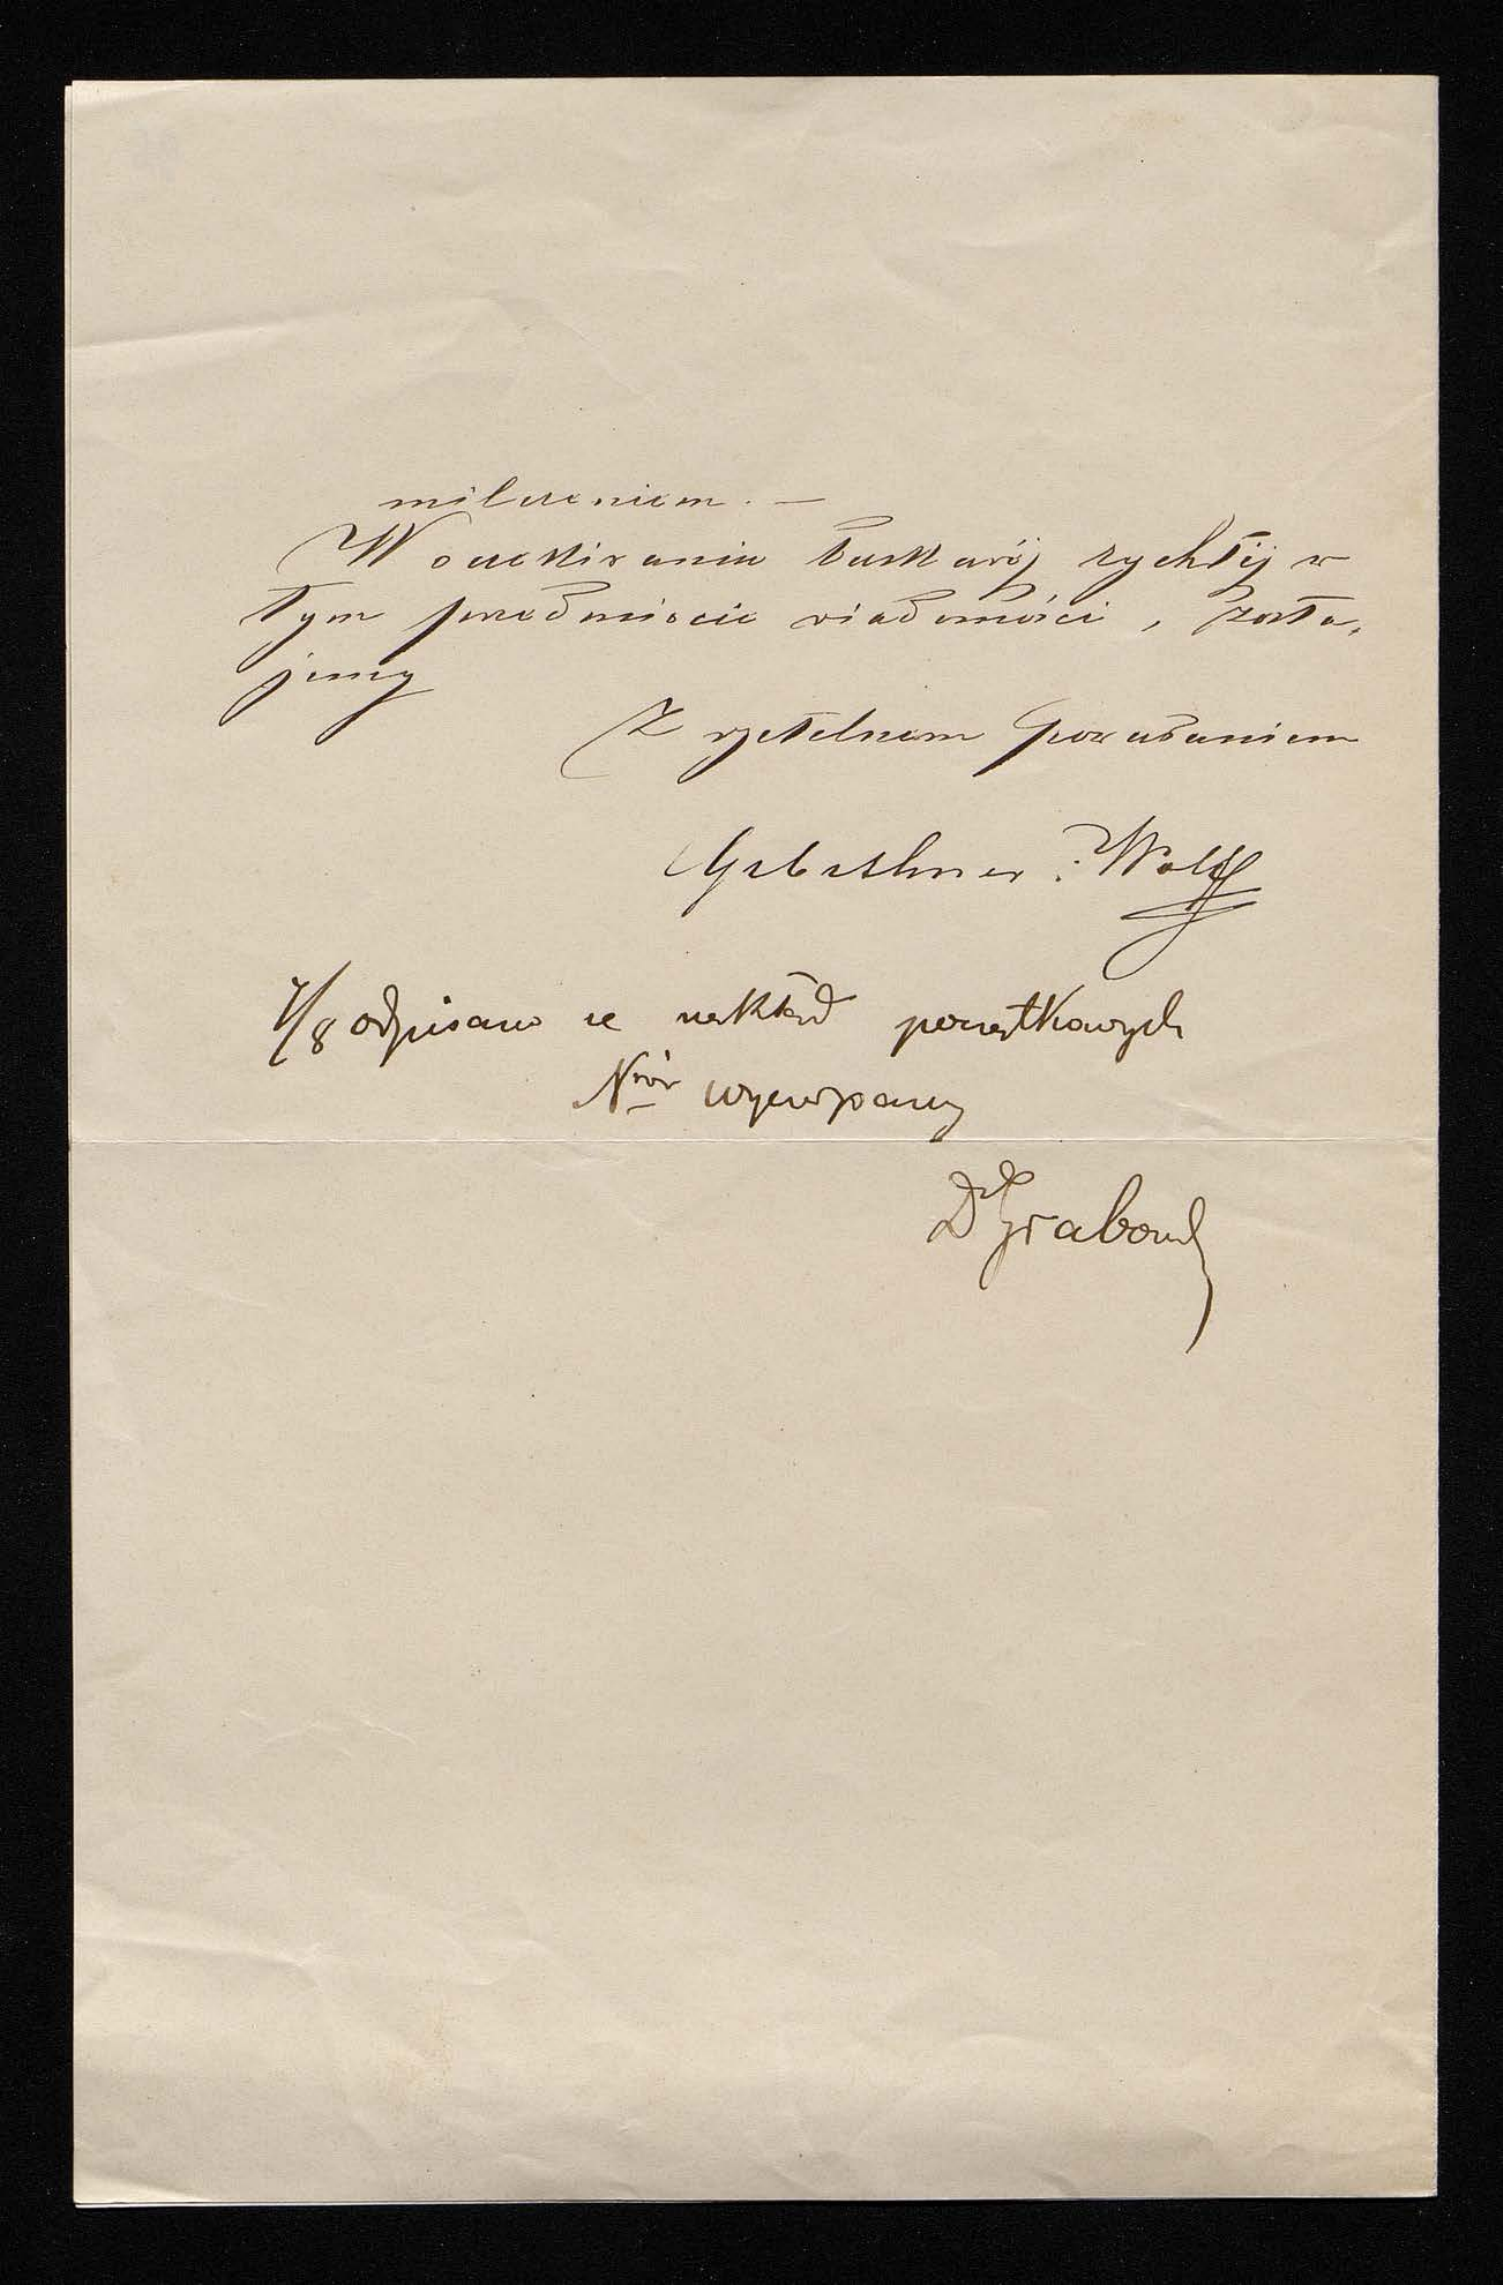 milczeniem. —
W oczekiwaniu łaskawéj rychłéj w
tym przedmiocie wiadomości, zosta-
jemy
Z rzetelnem poważaniem
Gebethner i Wolff
7/8 odpisano że nakład początkowych
Nrów wyczerpany
Dr